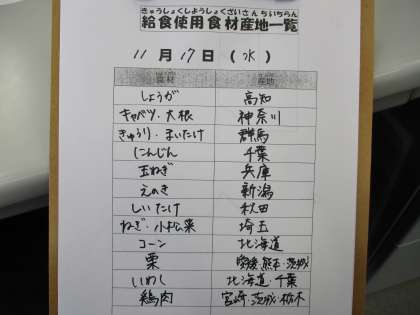 きゅうしょくしようしょくざいさんちいちらん
給食使用食材産地一覧
11月17日(水)
食材 産地
しょうが 高知
キャベツ・大根 神奈川
きゅうり・まいたけ 群馬
にんじん 千葉
玉ねぎ 兵庫
えのき 新潟
しいたけ 秋田
ねぎ・小松菜 埼玉
コーン 北海道
栗 愛媛・熊本・茨城
いわし 北海道・千葉
鶏肉 宮崎・茨城・栃木